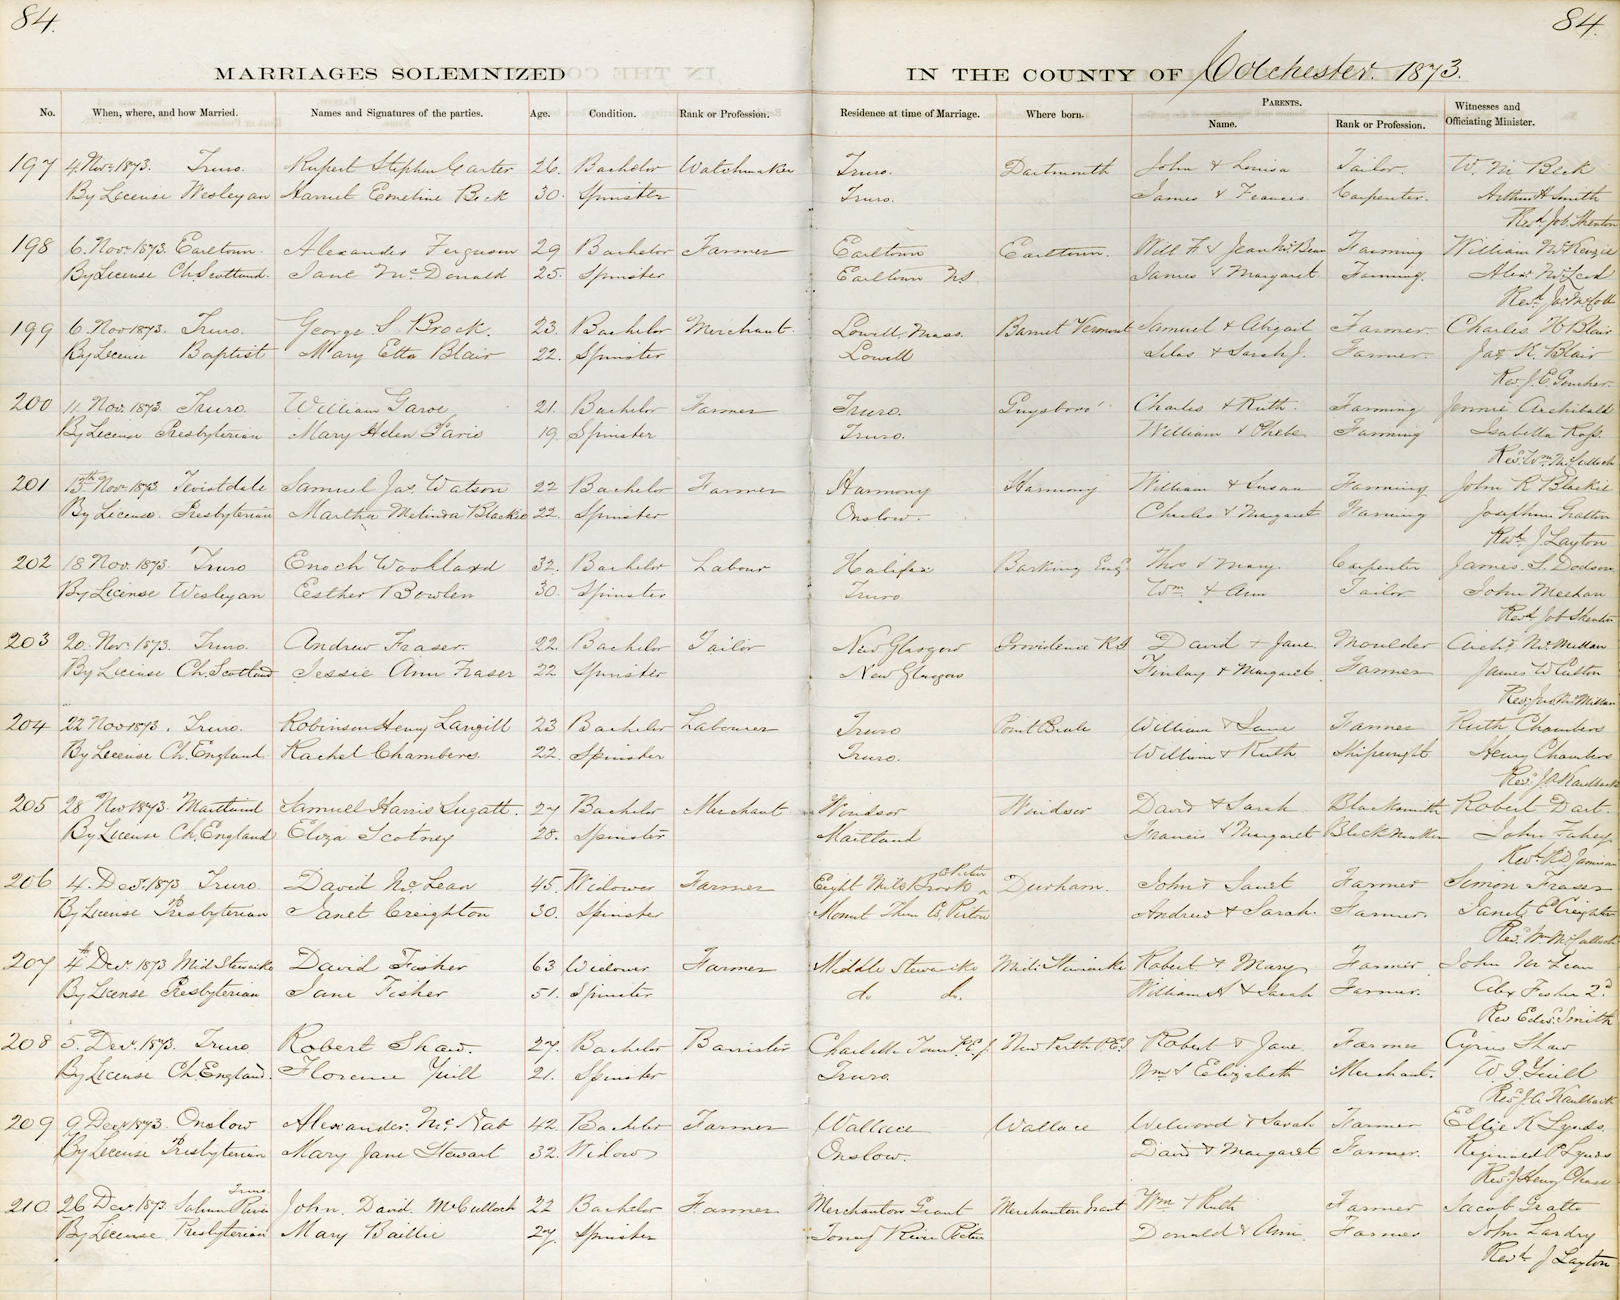 84. 84.
MARRIAGES SOLEMNIZED IN THE COUNTY OF Colchester. 1873.
No. When, where, and how Married. Names and Signatures of the parties. Age. Condition. Rank or Profession. Residence at time of Marriage. Where born. PARENTS. Name. Rank or Profession. Witnesses and Officiating Minister.
197 4 Nov. 1873. Truro. Rupert Stephen Carter 26. Bachelor Watchmaker Truro. Dartmouth John & Louisa Tailor. W. M. Beck
By License Wesleyan Harriet Emeline Beck 30. Spinster Truro. James & Frances Carpenter. Arthur H Smith
Revd. Job Shenton
198 6. Nov. 1873. Earltown. Alexander Ferguson 29 Bachelor Farmer Earltown Earltown. Will F & Jean McBean Farming William McKenzie
By License Ch. Scotland. Jane McDonald 25. Spinster Earltown NS. James & Margaret Farming. Alexr. McLeod
Revd. Jas. McColl
199 6. Nov 1873. Truro. George S. Brock. 23. Bachelor Merchant. Lowell, Mass. Barnet Vermont Samuel & Abigail Farmer. Charles H Blair
By License Baptist Mary Etta Blair 22. Spinster Lowell Silas & Sarah J. Farmer. Jas. K. Blair
Rev. J. E.
200 11. Nov. 1873. Truro. William 21. Bachelor Farmer Truro. Guysboro' Charles & Ruth. Farming Jennie Archibald
By License Presbyterian Mary Helen 19. Spinster Truro. William & Phebe Farming Isabella Ross.
Revd. Wm. McCulloch
201 13th Nov. 1873 Teviotdale Samuel Jas. Watson 22 Bachelor Farmer Harmony Harmony William & Susan Farming John R Blackie
By License. Presbyterian Martha Melinda Blackie 22. Spinster Onslow. Charles & Margaret Farming Josephine Gratton
Revd. J. Layton
202 18 Nov. 1873. Truro Enoch Woollard 32. Bachelor Labour Halifax Barking Eng. Thos & Mary. Carpenter James. S. Dodson
By License Wesleyan Esther Bowlen 30. Spinster Truro Wm. & Ann Tailor John Meehan
Revd. Job Shenton
203 20. Nov. 1873. Truro. Andrew Fraser. 22. Bachelor Tailor New Glasgow Providence R I David & Jane Moulder Archd. McMillan
By License Ch. Scotland Jessie Ann Fraser 22 Spinster New Glasgow Finlay & Margaret Farmer James W
Revd. McMillan
204 22 Nov 1873. Truro. Robinson Henry Langill 23 Bachelor Labourer Truro Point Brule William & Jane Farmer Ruth Chambers
By License Ch. England. Rachel Chambers. 22. Spinster Truro. William & Ruth Shipwright Henry Chambers
Revd. J A Kaulback
205 28 Nov 1873 Maitland Samuel Harris Sugatt. 27 Bachelor Merchant Windsor Windsor David & Sarah Blacksmith Robert Dart.
By License Ch. England Eliza Scotney 28. Spinster Maitland Francis & Margaret Block Maker John Fahey
Revd. R D Jamison
206 4. Dec. 1873 Truro David McLean 45. Widower Farmer Eight Mile Brook Co Pictou Durham. John & Janet Farmer Simon Fraser
By License Presbyterian Janet Creighton 30. Spinster Mount Thom Co. Pictou Andrew & Sarah. Farmer. Janet E Creighton
Revd. Wm. McCulloch
207 4th Dec. 1873 Mid Stewiacke David Fisher 63 Widower Farmer Middle Stewiacke Mid: Stewiacke Robert & Mary Farmer John McLean
By License Presbyterian Jane Fisher 51. Spinster do do. William A & Sarah Farmer. Alex Fisher 2d
Rev Edwd. Smith
208 5. Dec. 1873. Truro Robert Shaw. 27. Bachelor Barrister Charlotte Town P.E.I. New Perth P.E.I Robert & Jane Farmer Cyrus Shaw
By License Ch England. Florence Yuill 21. Spinster Truro. Wm & Elizabeth Merchant. W. G. Yuill
Revd. J. A. Kaulback
209 9 Decr 1873. Onslow Alexander. McNab 42. Bachelor Farmer Wallace Wallace Welwood & Sarah Farmer Ellie K Lynds.
By License Presbyterian Mary Jane Stewart 32. Widow Onslow. David & Margaret Farmer. Reginald P Lynds
Revd. J Henry Chase
210 26 Dec. 1873. Salmon River Truro John. David. McCulloch 22 Bachelor Farmer Merchanton Grant Merchanton Grant Wm & Ruth Farmer Jacob Gratto
By License Presbyterian Mary Baillie 27. Spinster Toney River Pictou Donald & Ann. Farmer John Landry
Revd. J Layton